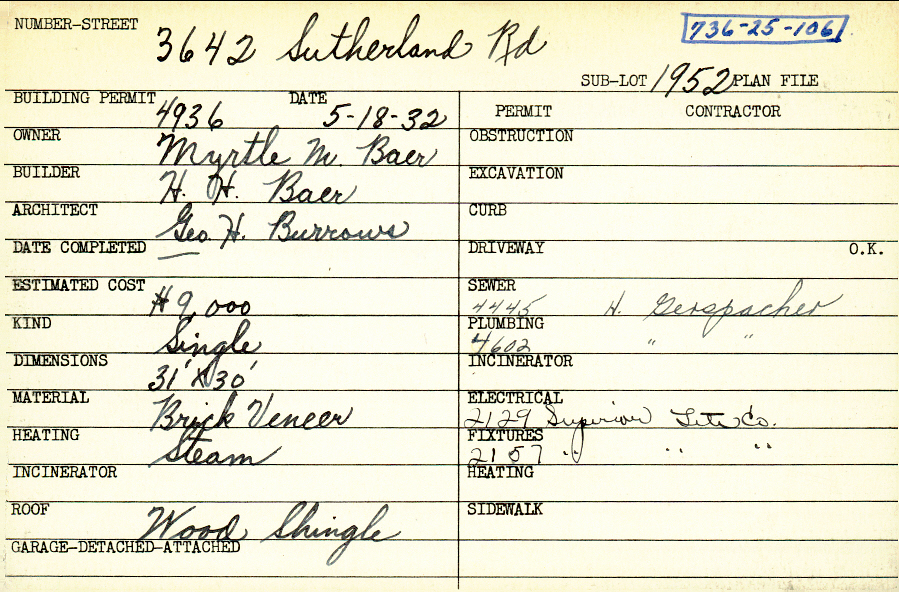 NUMBER-STREET 3642 Sutherland Rd 736-25-106
SUB-LOT 1952 PLAN FILE
BUILDING PERMIT 4936 DATE 5-18-32
OWNER Myrtle M. Baer
BUILDER H. H. Baer
ARCHITECT Geo. H. Burrows
DATE COMPLETED
ESTIMATED COST $9,000
KIND Single
DIMENSIONS 31' X 30'
MATERIAL Brick Veneer
HEATING Steam
INCINERATOR
ROOF Wood Shingle
GARAGE-DETACHED-ATTACHED
PERMIT CONTRACTOR
OBSTRUCTION
EXCAVATION
CURB
DRIVEWAY O.K.
SEWER
4445 H. Gerspacher
PLUMBING
4602 " "
INCINERATOR
ELECTRICAL
2129 Superior Lite Co.
FIXTURES
2157 " " "
HEATING
SIDEWALK